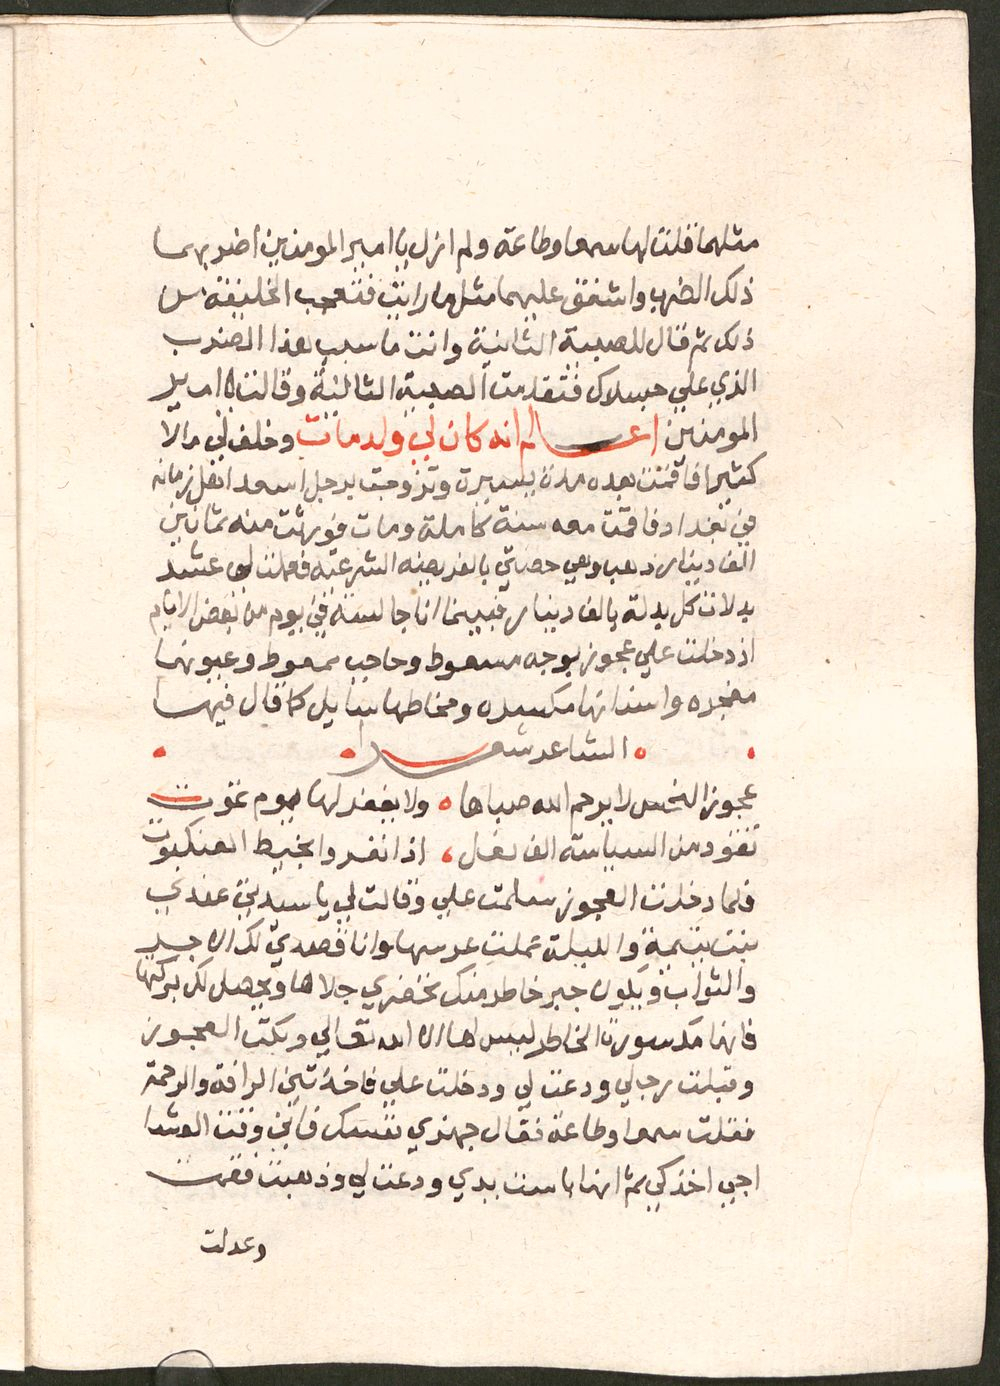 مثلهما فقلت لها سمعا وطاعة ولم ازل يا امير المومنين اضربهما
ذلك الضرب واشفق عليهما مثل ما رايت فتعجب الخليفة من
ذلك ثم قال للصبية الثانية وانت ما سبب هذا الضرب
الذي علي جسدك فتقدمت الصبية الثالثة وقالت يا امير
المومنين اعلم انه كان لي ولد مات وخلف لي مالا
كثيرا فاقمت بعده مدة يسيرة وتزوجت برجل اسعد اهل زمانه
في بغداد فاقمت معه سنة كاملة ومات فورثت منه ثمانين
الف دينار ذهب وهي حصتي بالفريضه الشرعيه فعملت لي عشر
بدلات كل بدلة بالف دينار فبينما انا جالسة في يوم من بعض الايام
اذ دخلت علي عجوز بوجه مسعوط وحاجب ممعوط وعيونها
مفجره واسنانها مكسره ومخاطها سايل كما قال فيها
الشاعر شعرا
عجوز النحس لا يرحم الله صباها ولا يغفر لها يوم تموت
تقود من السياسة الف بغل اذا نفروا بخيط العنكبوت
فلما دخلت العجوز سلمت علي وقالت لي يا سيدتي عندي
بنت يتيمة والليلة عملت عرسها وانا قصدي لك الاجر
والثواب ويكون جبر خاطر منك تحضري جلاها ويحصل لك بركتها
فانها مكسورة الخاطر ليس لها الا الله تعالي وبكت العجوز
وقبلت رجلي ودعت لي ودخلت علي فاخذتني الرافة والرحمة
فقلت سمعا وطاعة فقال جهزي نفسك فاني وقت العشا
اجي اخذكي ثم انها باست يدي ودعت لي وذهبت فقمت
وعدلت